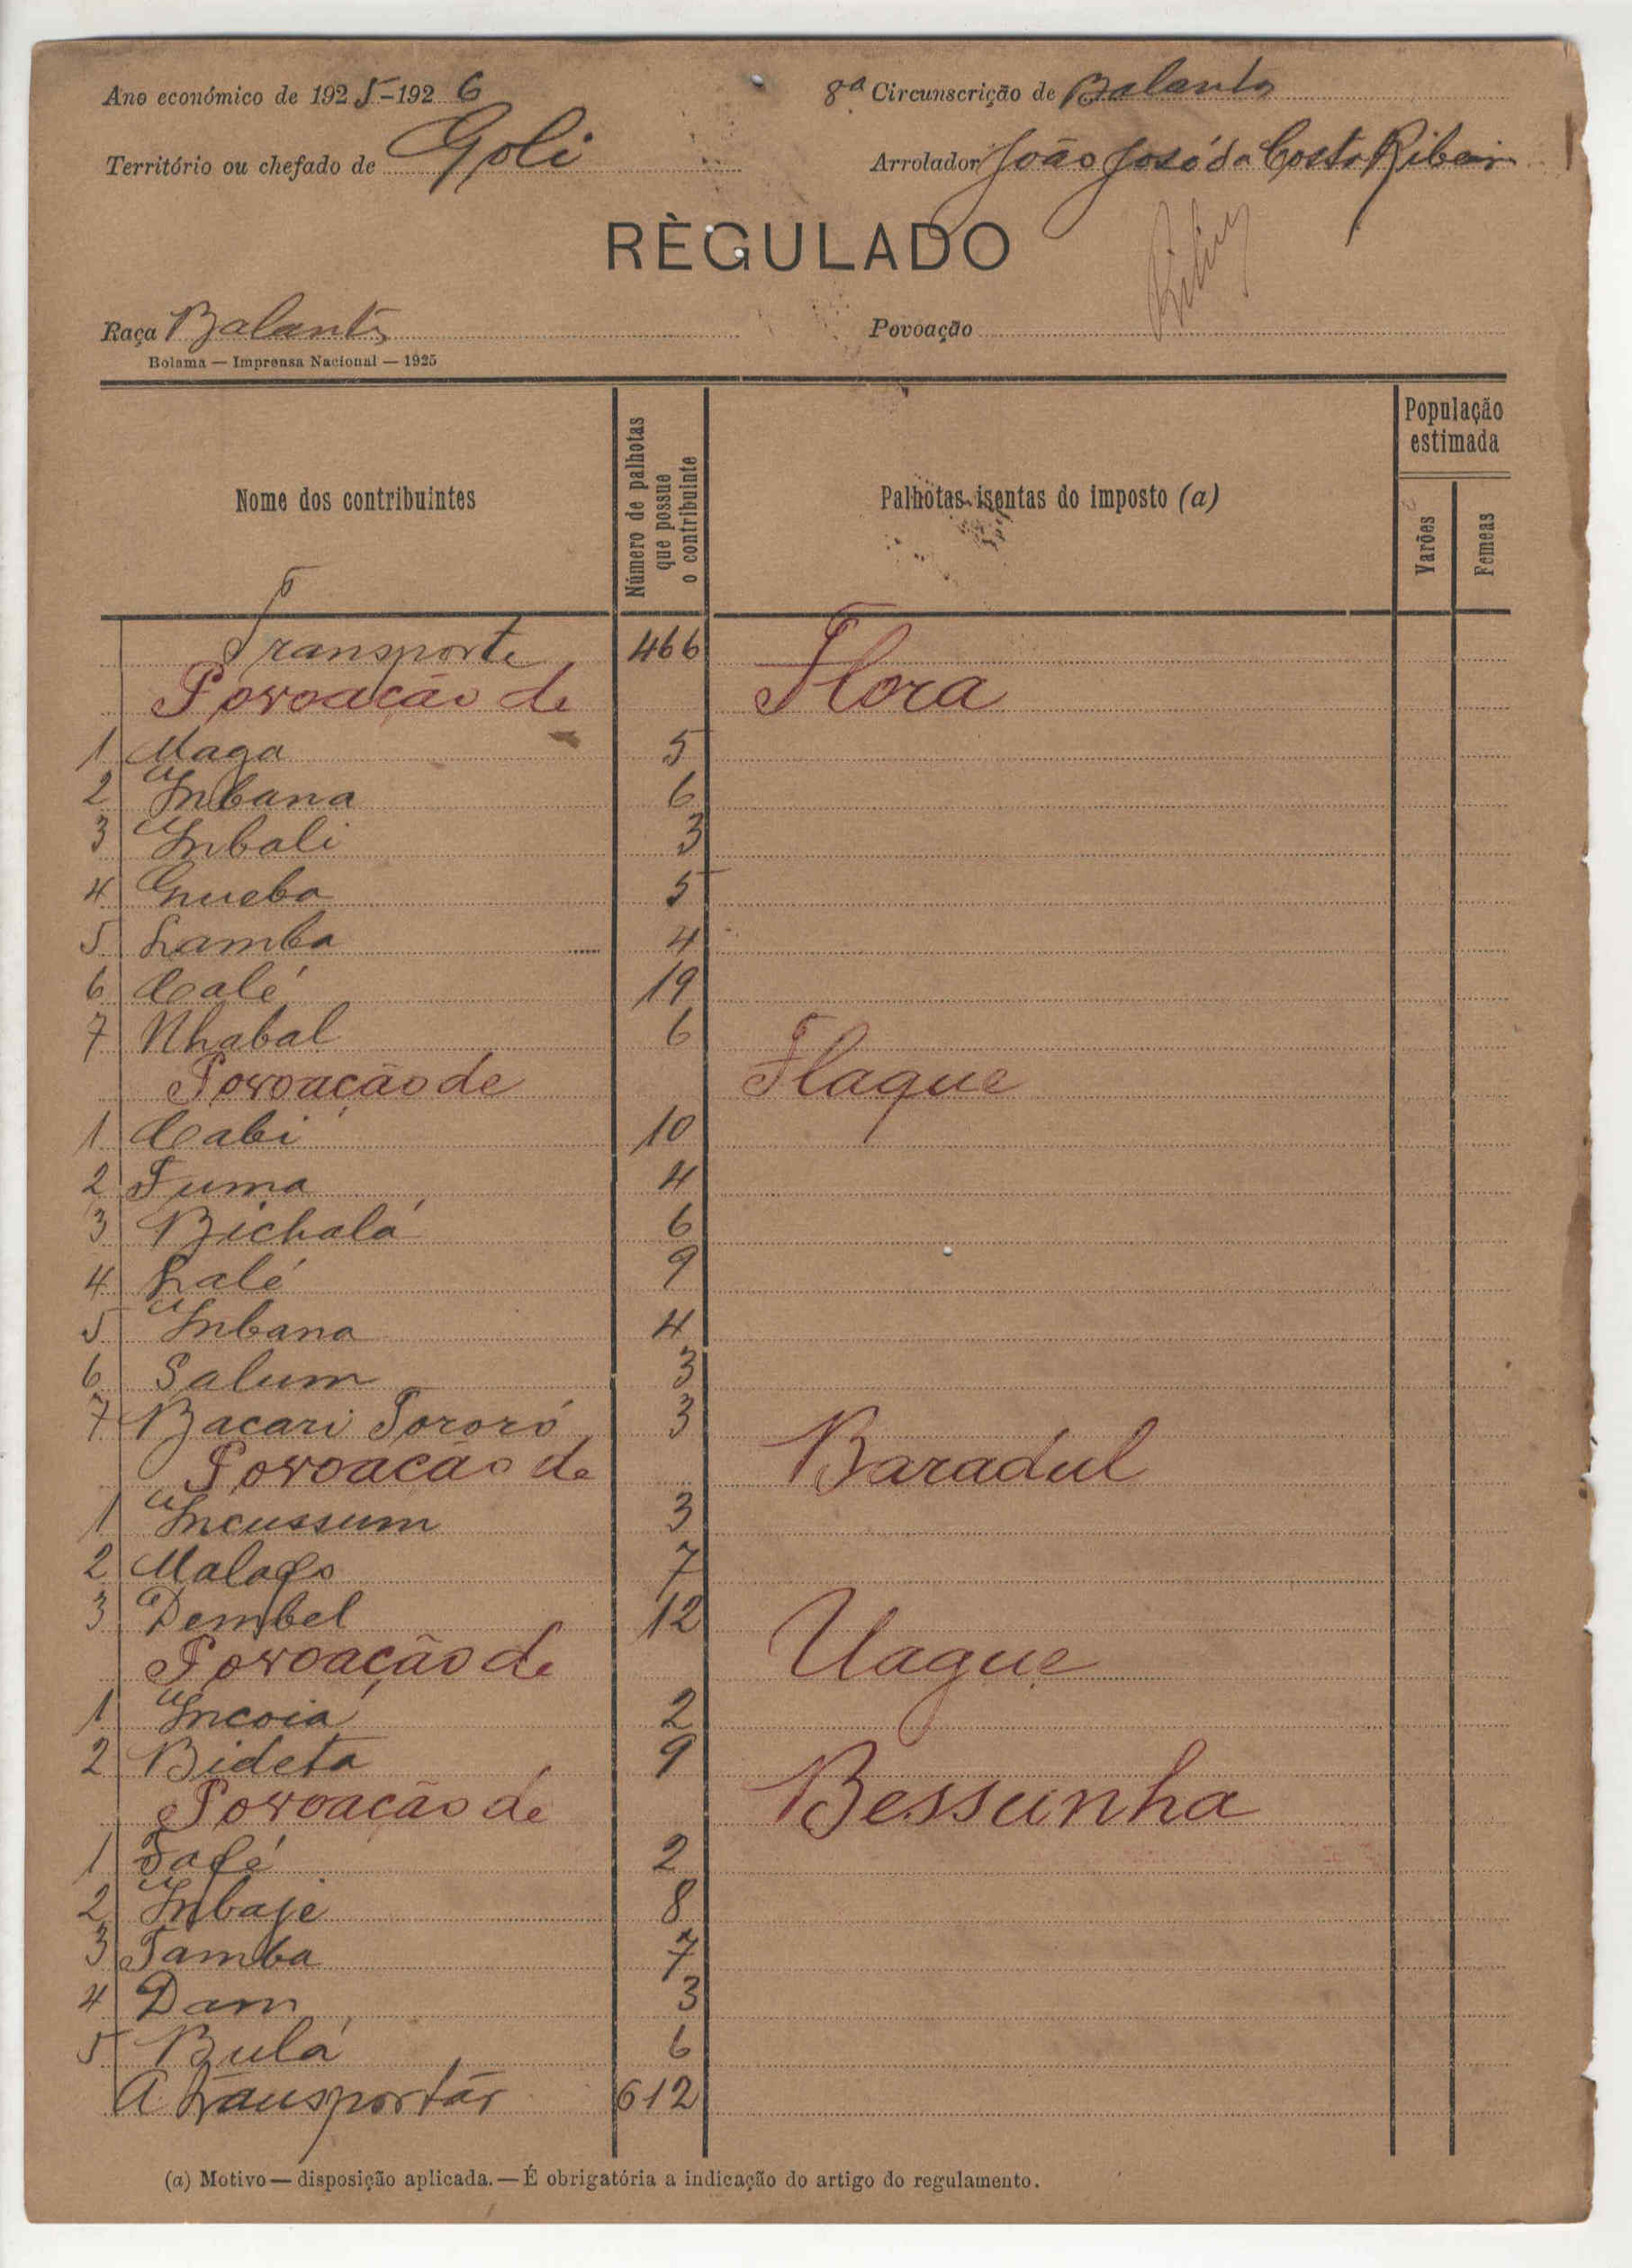 Ano económico de 1925-1926
8ª Circunscrição de Balanta
Território ou chefado de Goli
Arrolador João José da Costa Ribeiro
RÈGULADO
Raça Balanta
Povoação
Bolama — Imprensa Nacional — 1925
Nome dos contribuintes
Número de palhotas que possue o contribuinte
Palhotas isentas do imposto (a)
População estimada
Varões
Femeas
Transporte 466
Povoação de Flora
1 Maga 5
2 Inbana 6
3 Inbali 3
4 Gnueba 5
5 Lamba 4
6 Calé 19
7 Nhabal 6
Povoação de Flaque
1 Cabi 10
2 Tuma 4
3 Bichalá 6
4 Lalé 9
5 Inbana 4
6 Salum 3
7 Bacari Tororó 3
Povoação de Baradul
1 Incussum 3
2 Malafo 7
3 Dembel 12
Povoação de Uaque
1 Incoiá 2
2 Bideta 9
Povoação de Bessunha
1 Safé 2
2 Inbaje 8
3 Tamba 7
4 Dam 3
5 Bulá 6
A transportár 612
(a) Motivo — disposição aplicada. — É obrigatória a indicação do artigo do regulamento.